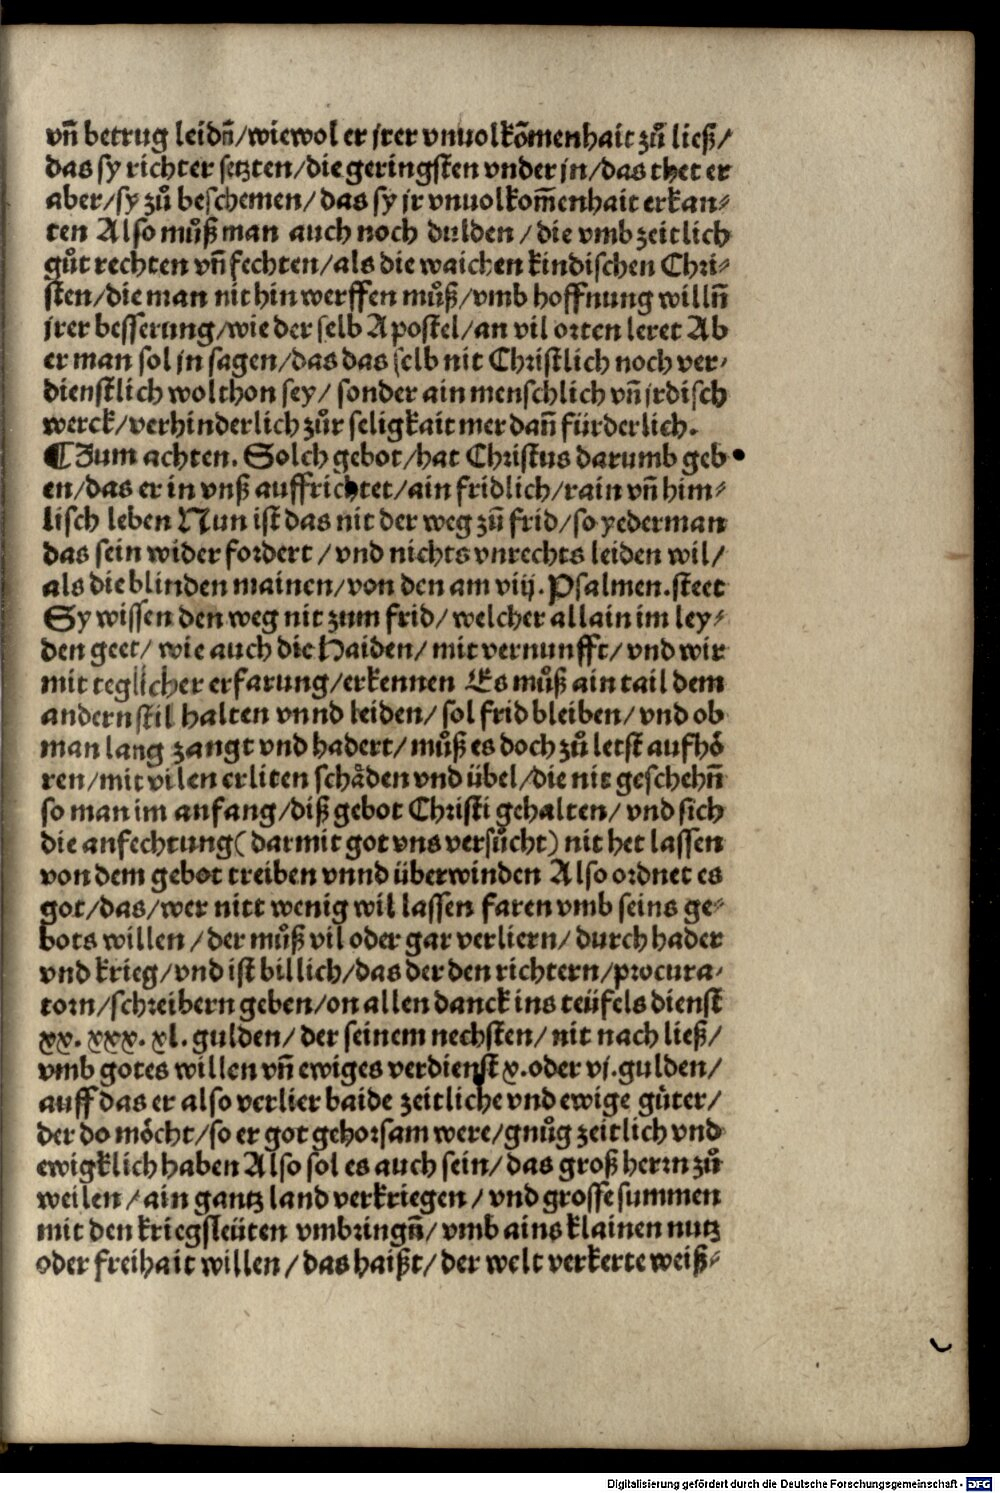 vñ betrug leidñ/wiewol er jrer vnuolkõmenhait zů ließ/
das sy richter setzten/die geringsten vnder jn/das thet er
aber/sy zů beschemen/das sy jr vnuolkom̃enhait erkan⸗
ten Also můß man auch noch dulden/die vmb zeitlich
gůt rechten vñ fechten/als die waichen kindischen Chri⸗
sten/die man nit hin werffen můß/vmb hoffnung willñ
jrer besserung/wie der selb Apostel/an vil orten leret Ab
er man sol jn sagen/das das selb nit Christlich noch ver⸗
dienstlich wolthon sey/sonder ain menschlich vñ jrdisch
werck/verhinderlich zůr seligkait mer dañ fürderlich.
¶Zum achten. Solch gebot/hat Christus darumb geb
en/das er in vnß auffrichtet/ain fridlich/rain vñ him⸗
lisch leben Nun ist das nit der weg zů frid/so yederman
das sein wider fordert/vnd nichts vnrechts leiden wil/
als die blinden mainen/von den am viij. Psalmen.steet
Sy wissen den weg nit zum frid/welcher allain im ley⸗
den geet/wie auch die Haiden/mit vernunfft/vnd wir
mit teglicher erfarung/erkennen Es můß ain tail dem
andern stil halten vnnd leiden/sol frid bleiben/vnd ob
man lang zangt vnd hadert/můß es doch zů letst aufhö
ren/mit vilen erliten schäden vnd übel/die nit geschehñ
so man im anfang/diß gebot Christi gehalten/vnd sich
die anfechtung(darmit got vns versůcht)nit het lassen
von dem gebot treiben vnnd überwinden Also ordnet es
got/das/wer nitt wenig wil lassen faren vmb seins ge⸗
bots willen/der můß vil oder gar verliern/durch hader
vnd krieg/vnd ist billich/das der den richtern/procura⸗
torn/schreibern geben/on allen danck ins teüfels dienst
xx. xxx. xl. gulden/der seinem nechsten/nit nach ließ/
vmb gotes willen vñ ewiges verdienst x.oder vj.gulden/
auff das er also verlier baide zeitliche vnd ewige güter/
der do möcht/so er got gehorsam were/gnůg zeitlich vnd
ewigklich haben Also sol es auch sein/das groß herrn zů
weilen/ain gantz land verkriegen/vnd grosse summen
mit den kriegsleüten vmbringñ/vmb ains klainen nutz
oder freihait willen/das haißt/der welt verkerte weiß⸗
Digitalisierung gefördert durch die Deutsche Forschungsgemeinschaft - DFG